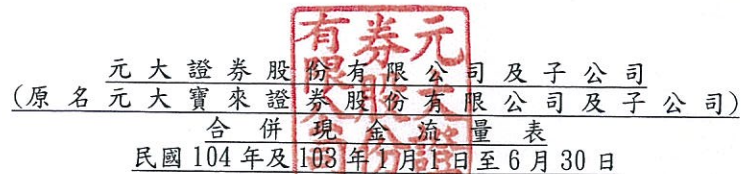 元大證券股份有限公司及子公司
(原名元大寶來證券股份有限公司及子公司)
合併現金流量表
民國104年及103年1月1日至6月30日